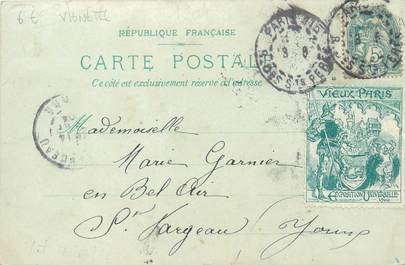 6€ VIGNETTE
RÉPUBLIQUE FRANÇAISE
CARTE POSTALE
Ce côté est exclusivement réservé à l'adresse
5
VIEUX PARIS
EXPOSITION UNIVERSELLE
1900
Mademoiselle
Marie Garnier
en Bel Air
St Fargeau Yonne